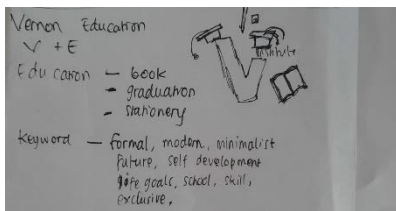 Vernon Education
V + E
Education - book
- graduation
- stationery
Keyword - formal, modern, minimalist
future, self development
life goals, school, skill,
exclusive.
V
institute